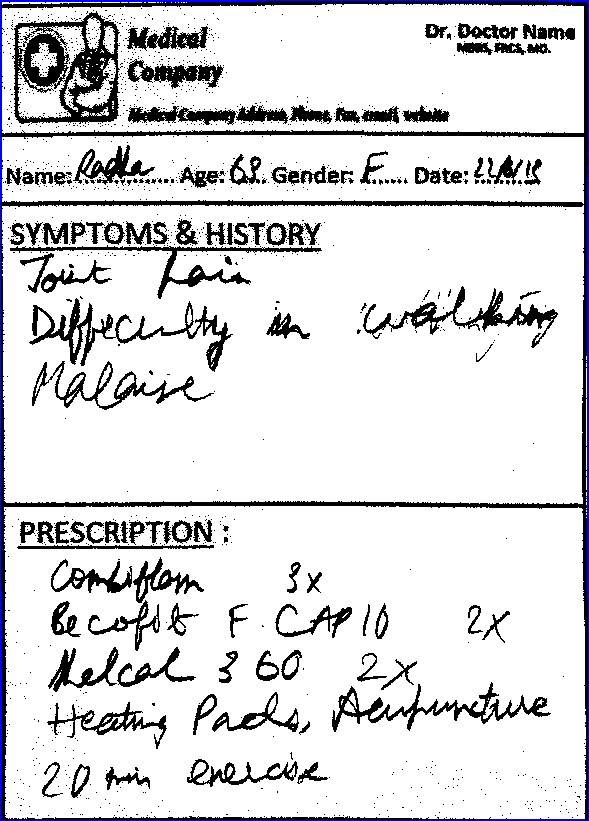 Medical
Company
Dr. Doctor Name
MBBS, FRCS, MD.
Medical Company Address, Phone, Fax, email, website
Name: Radha Age: 69 Gender: F Date:
SYMPTOMS & HISTORY
Joint Pain
Difficulty in walking
Malaise
PRESCRIPTION :
Combiflam 3x
Becofit F CAP 10 2x
Melcal 360 2x
Heating Pads, Acupuncture
20 min exercise